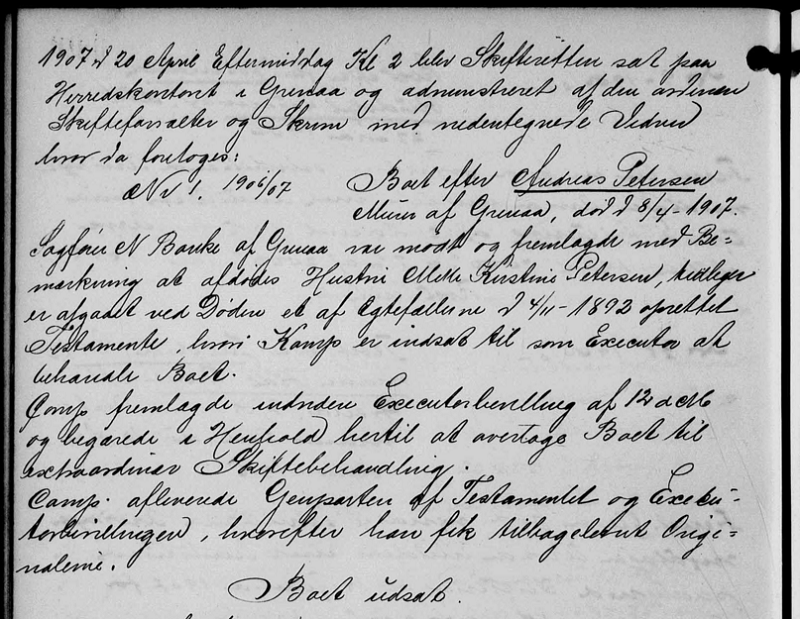 1907 d 20 April Eftermiddag Kl 2 blev Skifteretten sat paa
Herredskontoret i Grenaa og administreret af den ordinære
Skifteforvalter og Skriver med nedentegnede Vidner
hvor da foretoges:
Nr 1. 1906/07 Boet efter Andreas Petersen
Murer af Grenaa, død d 8/4-1907.
Sagfører N Banke af Grenaa var mødt og fremlagde med Be=
mærkning at afdødes Hustru Mette Kirstine Petersen, tidligere
er afgaaet ved Døden et af Ægtefællerne d 4/11-1892 oprettet
Testamente, hvori Komp er indsat til som Executor at
behandle Boet.
Comp fremlagde endvidere Executorbevilling af 12 d M
og begærede i Henhold hertil at overtage Boet til
extraordinær Skiftebehandling.
Comp. afleverede Genparten af Testamentet og Execu=
torbevillingen, hvorefter han fik tilbageleveret Origi=
nalerne.
Boet udsat.